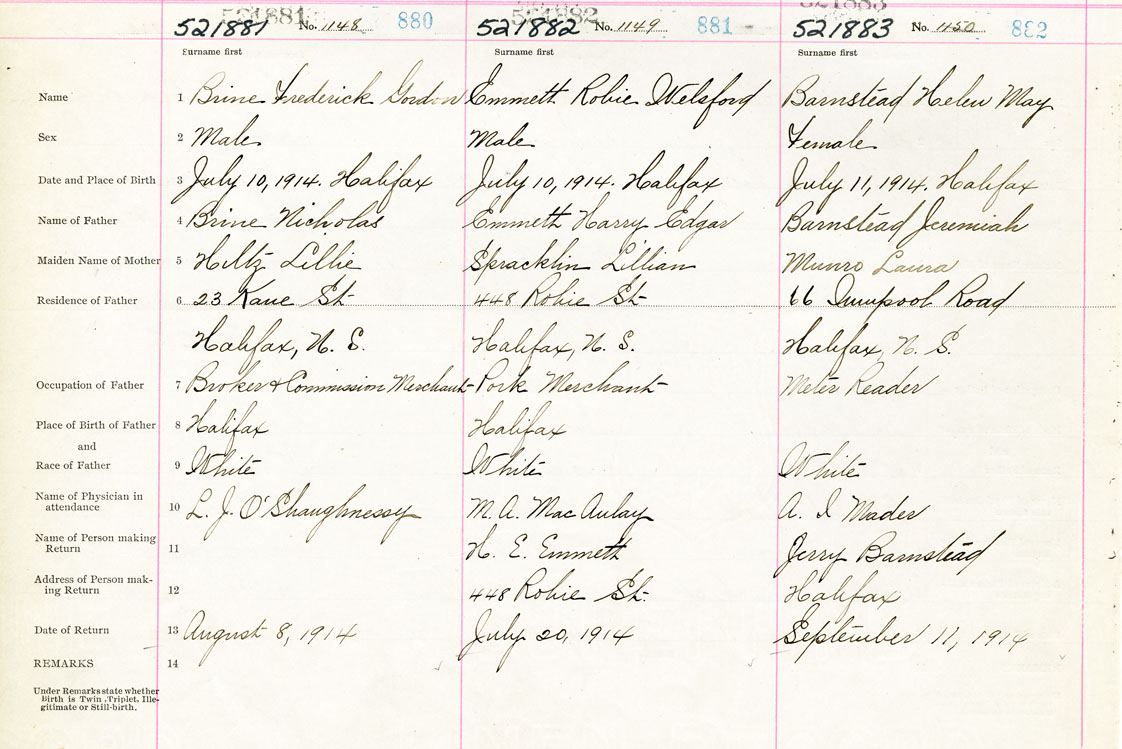 521881 521882 521883
521881 No. 1148 880 521882 No. 1149 881 521883 No. 1150 882
Surname first Surname first Surname first
Name 1 Brine Frederick Gordon Emmett Robie Welsford Barnstead Helen May
Sex 2 Male Male Female
Date and Place of Birth 3 July 10, 1914. Halifax July 10, 1914. Halifax July 11, 1914. Halifax
Name of Father 4 Brine Nicholas Emmett Harry Edgar Barnstead Jeremiah
Maiden Name of Mother 5 Hiltz Lillie Spracklin Lillian Munro Laura
Residence of Father 6 23 Kane St. 448 Robie St. 66 Road
Halifax, N. S. Halifax, N. S. Halifax, N. S.
Occupation of Father 7 Broker & Commission Merchant Pork Merchant Meter Reader
Place of Birth of Father 8 Halifax Halifax
and
Race of Father 9 White White White
Name of Physician in
attendance 10 L. J. O'Shaughnessy M. A. MacAulay A. I Mader
Name of Person making
Return 11 H. E. Emmett Jerry Barnstead
Address of Person mak-
ing Return 12 448 Robie St. Halifax
Date of Return 13 August 8, 1914 July 20, 1914 September 11, 1914
REMARKS 14
Under Remarks state whether
Birth is Twin, Triplet, Ille-
gitimate or Still-birth.